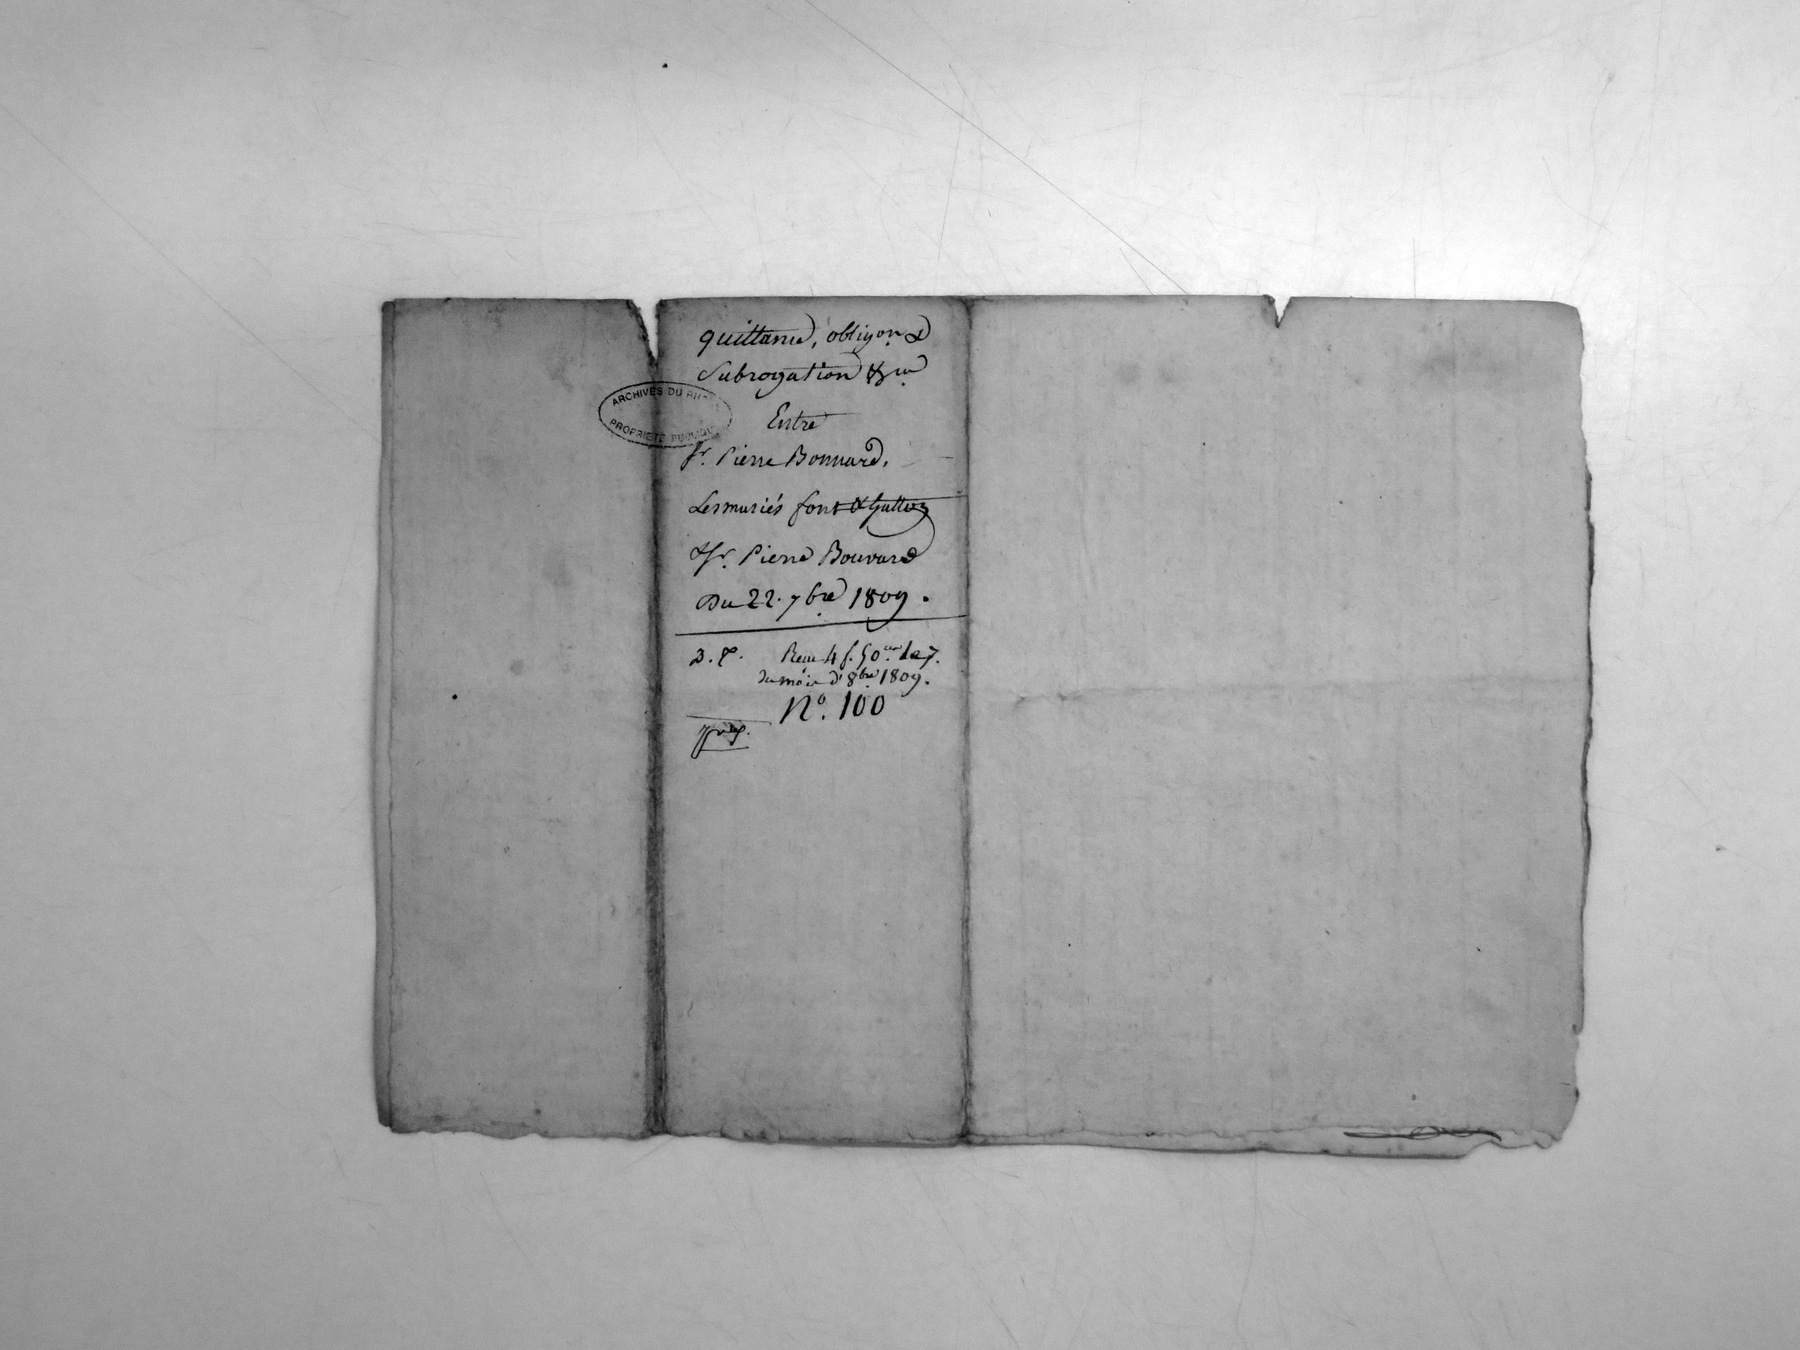 quittance, obligon &
Subrogation &ra
Entre
ARCHIVES DU RHONE
PROPRIETE PUBLIQUE
Sr. Pierre Bonnard,
Les mariés font & Gallois
& Sr. Pierre Bouvard
Du 22. 7bre 1809.
Reçu 4 f. 50 ces. le 7.
du mois d' 8bre 1809.
No. 100